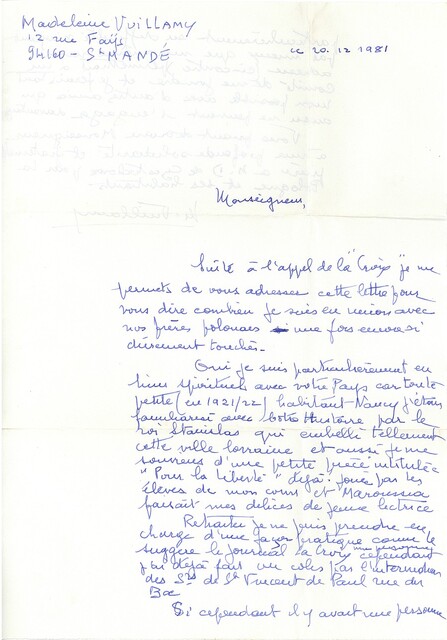 Madeleine Vuillamy
12 rue Faÿs
94160 - St MANDÉ
le 20.12 1981
Monseigneur,
Suite à l'appel de la "Croix" je me
permets de vous adresser cette lettre pour
vous dire combien je suis en union avec
nos frères polonais une fois encore si
durement touchés.
Oui je suis particulièrement en
liens spirituels avec votre Pays car toute
petite (en 1921/22) habitant Nancy j'étais
familiarisée avec votre Histoire par le
roi Stanislas qui embellit tellement
cette ville lorraine et aussi je me
souviens d'une petite pièce intitulée
"Pour la liberté" déjà! jouée par les
élèves de mon cours et Maroussia
faisait mes délices de jeune lectrice
Retraitée je ne puis prendre en
charge d'une façon pratique comme le
suggère le journal la Croix cependant
j'ai déjà fait un colis par l'intermédiaire
des Srs de St Vincent de Paul rue du
Bac
Si cependant il y avait une personne